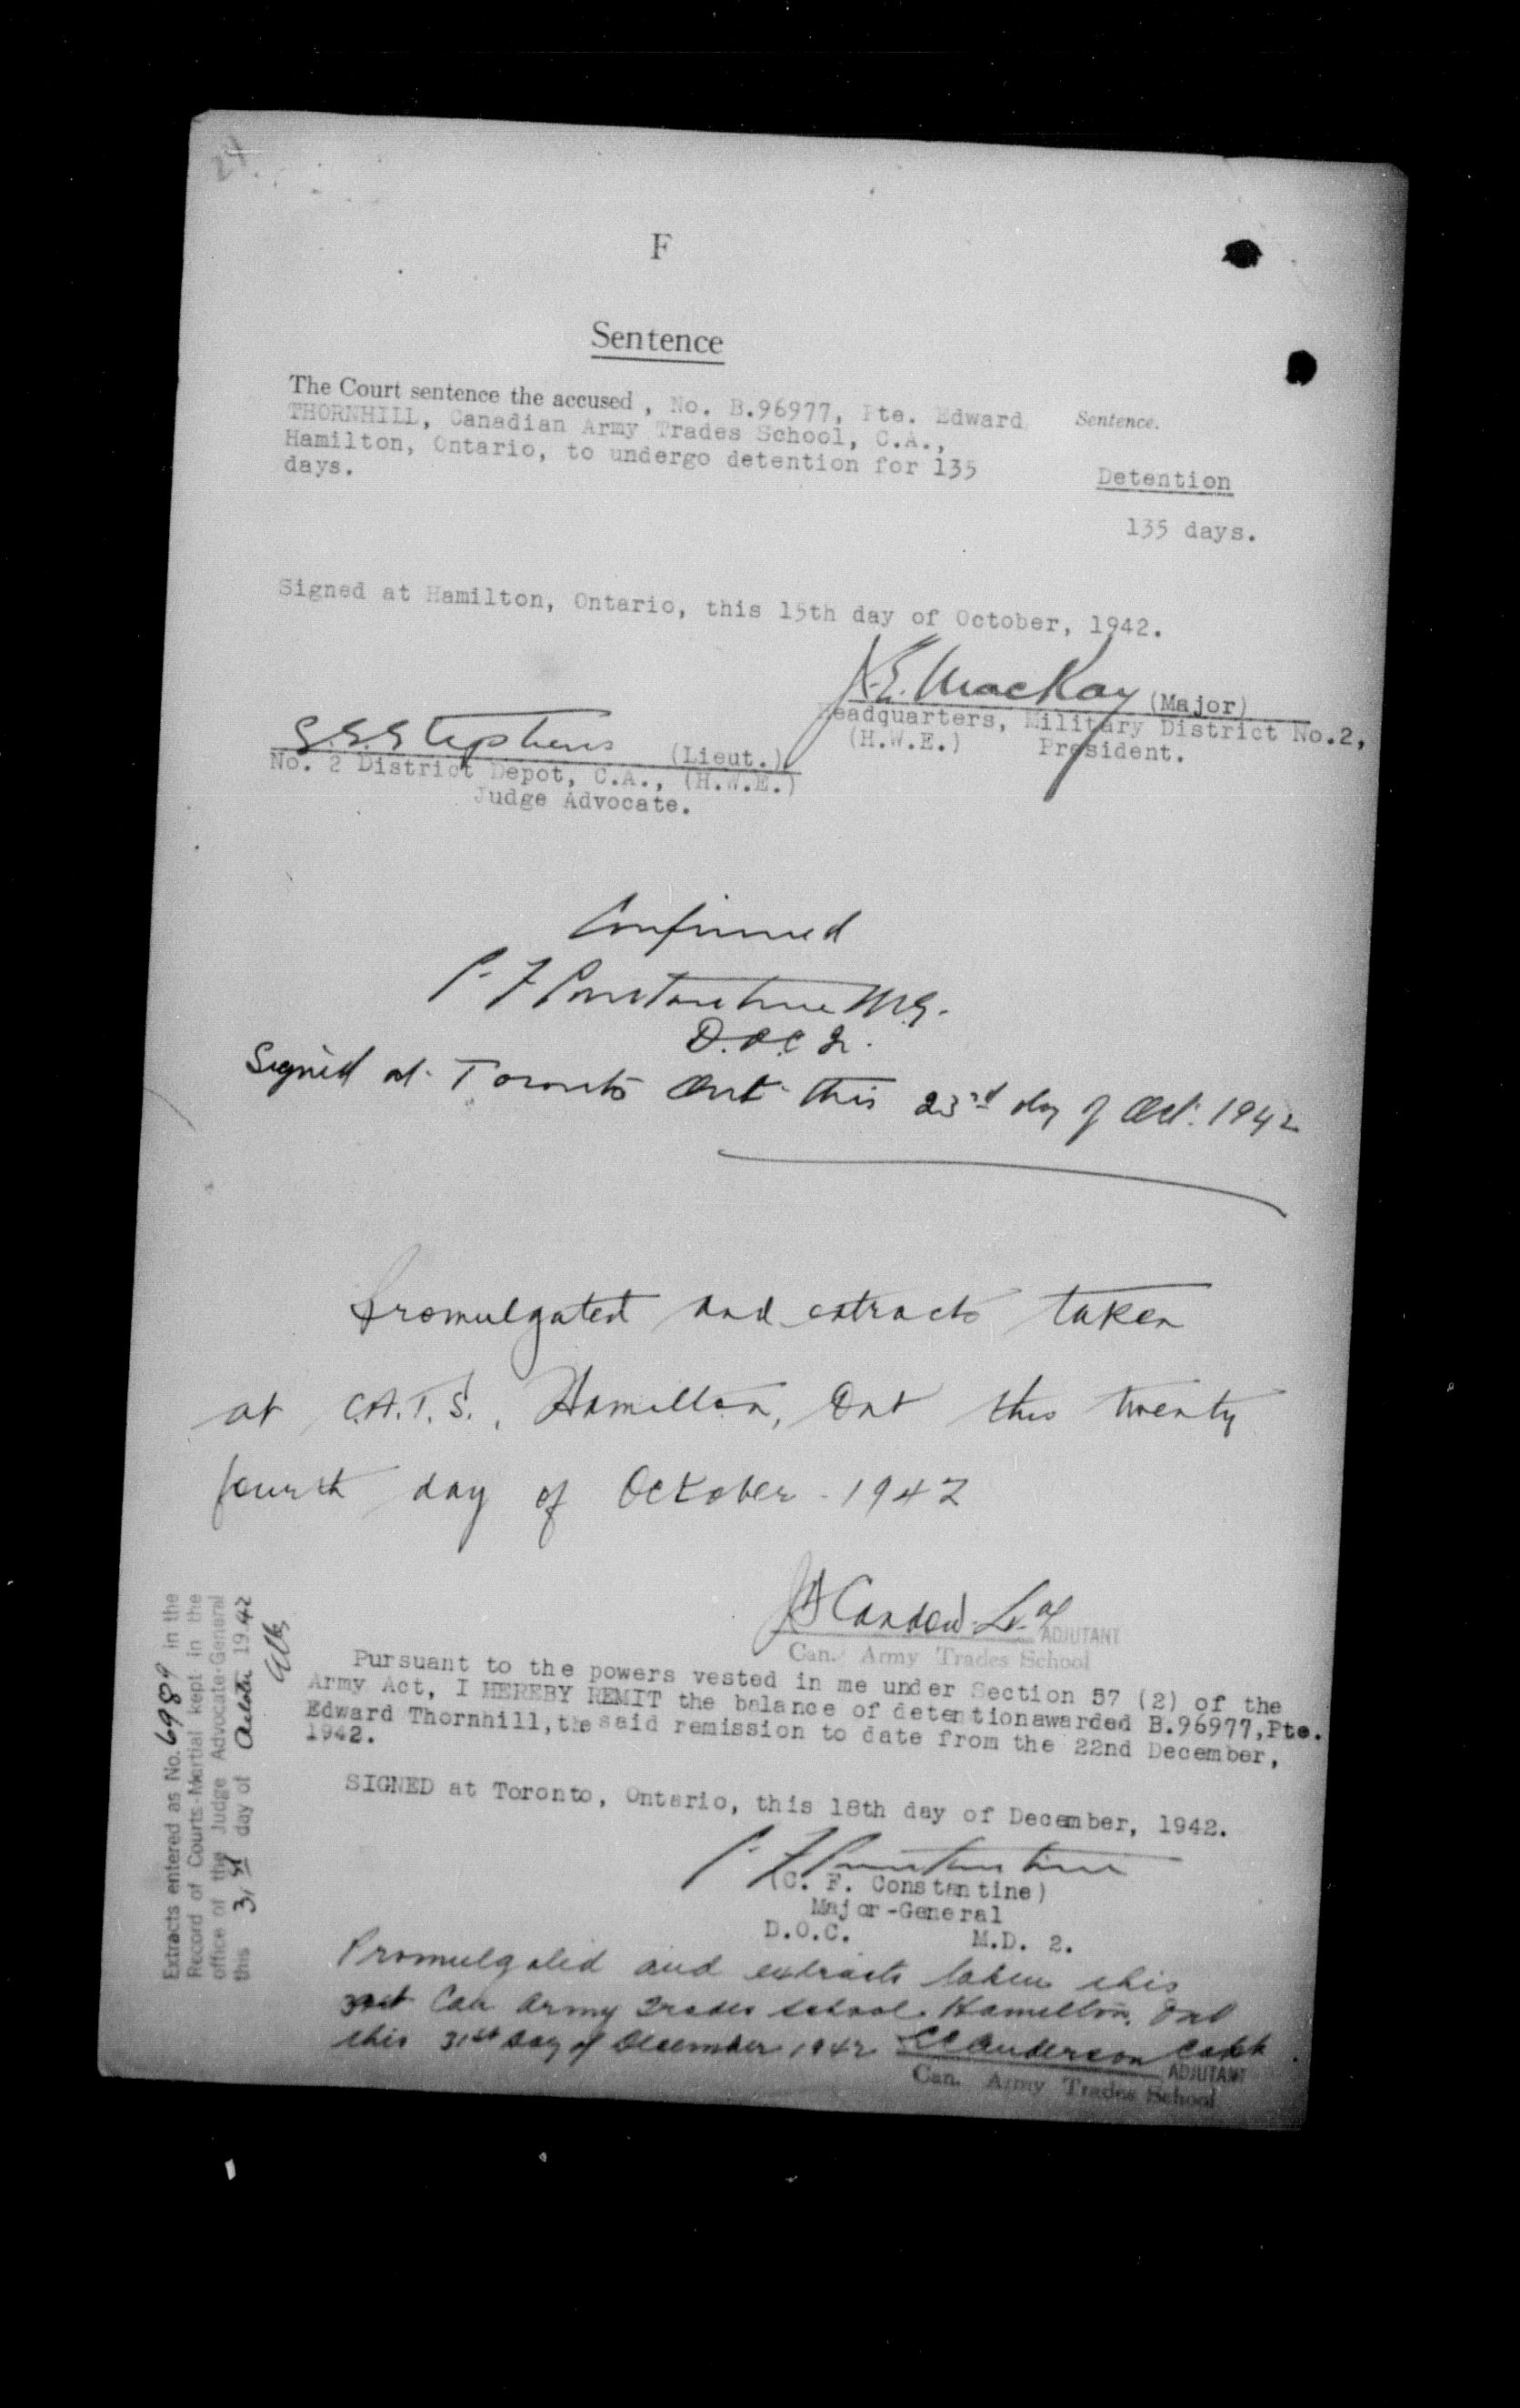 24
F
Sentence
The Court sentence the accused , No. B.96977, Pte. Edward
THORNHILL, Canadian Army Trades School, C.A.,
Hamilton, Ontario, to undergo detention for 135
days.
Sentence.
Detention
135 days.
Signed at Hamilton, Ontario, this 15th day of October, 1942.
MacKay (Major)
Headquarters, Military District No.2,
(H.W.E.) President.
Stephens (Lieut.)
No. 2 District Depot, C.A., (H.W.E.)
Judge Advocate.
Confirmed
C. F. Constantine M.G.
D.O.C. 2.
Signed at Toronto Ont this 23rd day of Oct. 1942
Promulgated and extracts taken
at C.A.T.S., Hamilton, Ont this twenty
fourth day of October 1942
ADJUTANT
Can. Army Trades School
Pursuant to the powers vested in me under Section 57 (2) of the
Army Act, I HEREBY REMIT the balance of detentionawarded B.96977,Pte.
Edward Thornhill,the said remission to date from the 22nd December,
1942.
SIGNED at Toronto, Ontario, this 18th day of December, 1942.
C. F. Constantine
(C. F. Constantine)
Major-General
D.O.C. M.D. 2.
Promulgated and extracts taken this
Can Army Trades School Hamilton, Ont
this 31st Day of December 1942 Anderson Capt
ADJUTANT
Can. Army Trades School
Extracts entered as No. 6989 in the
Record of Courts-Martial kept in the
office of the Judge Advocate-General
this 31st day of October 1942